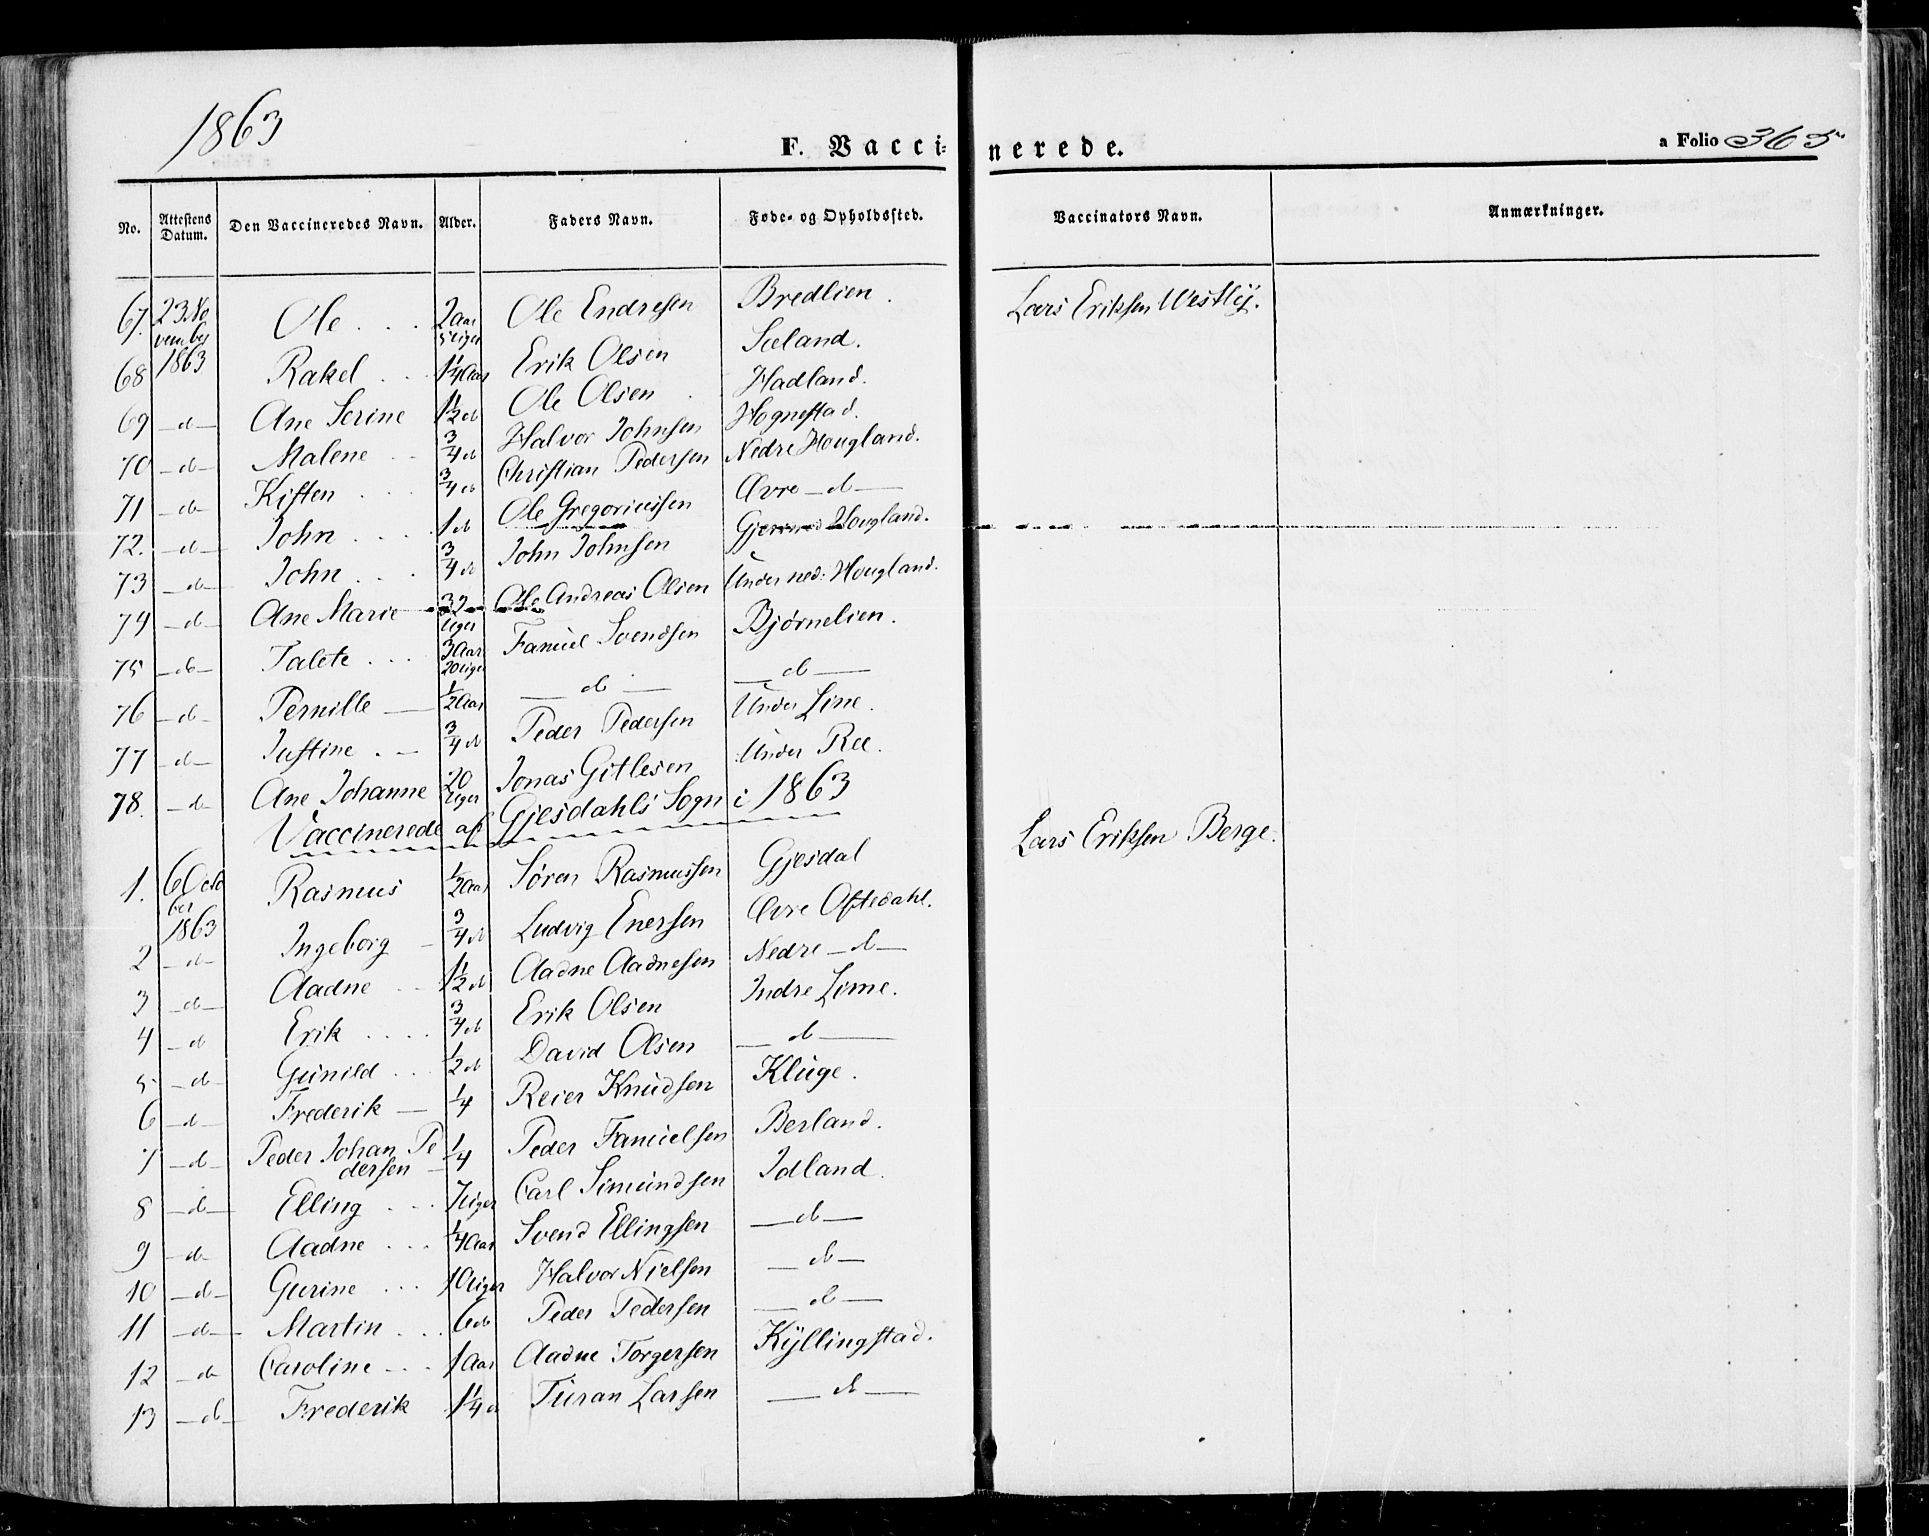 1863
F. Vaccinerede.
a Folio 365
No. Attestens Datum. Den Vaccineredes Navn. Alder. Faders Navn. Føde- og Opholdssted. Vaccinators Navn. Anmærkninger.
67. 23 November 1863 Ole 2 Aar 5 Uger Ole Endresen Bredlien. Lars Eriksen Westly.
68 Rakel 1 1/4 Aar Erik Olsen Sæland.
69 -d- Ane Serine 1 1/2 d Ole Olsen Hadland.
70 -d- Malene 3/4 d Halvor Johnsen Hognestad.
71 -d- Kisten 3/4 d Christian Pedersen Nedre Hougland.
72. -d- John 1 d Ole Gregoriussen Øvre -d-
73 -d- John 3/4 d John Johnsen Hougland.
74 -d- Ane Marie 32 Uger Ole Andreas Olsen Under ned: Hougland.
75 -d- Talete 3 Aar 20 Uger Famuel Svendsen Bjørnelien.
76 -d- Pernille 1/2 Aar -d- -d-
77 -d- Justine 3/4 d Peder Pedersen Under Line.
78. -d- Ane Johanne 20 Uger Jonas Gitlesen Under Ree.
Vaccinerede af Gjesdahls Sogn i 1863
1. 6 October 1863 Rasmus 1/2 Aar Søren Rasmussen Gjesdal Lars Eriksen Berge.
2 -d- Ingeborg 3/4 d Ludvig Enersen Øvre Oftedahl.
3 -d- Aadne 1 1/2 d Aadne Aadnesen Nedre -d-
4 -d- Erik 3/4 d Erik Olsen Indre Lime.
5 -d- Gunild 1/2 d David Olsen -d-
6 -d- Frederik 1/4 Reier Knudsen Kluge.
7 -d- Peder Johan Pedersen 1/4 Peder Famuelsen Berland.
8 -d- Elling 7 Uger Carl Simundsen Idland.
9 -d- Aadne 1/4 Aar Svend Ellingsen -d-
10 -d- Gurine 10 Uger Halvor Nielsen -d-
11 -d- Martin 6 d Peder Pedersen -d-
12 -d- Caroline 1 Aar Aadne Torgersen Kyllingstad.
13 -d- Frederik 1 1/4 d Turan Larsen -d-